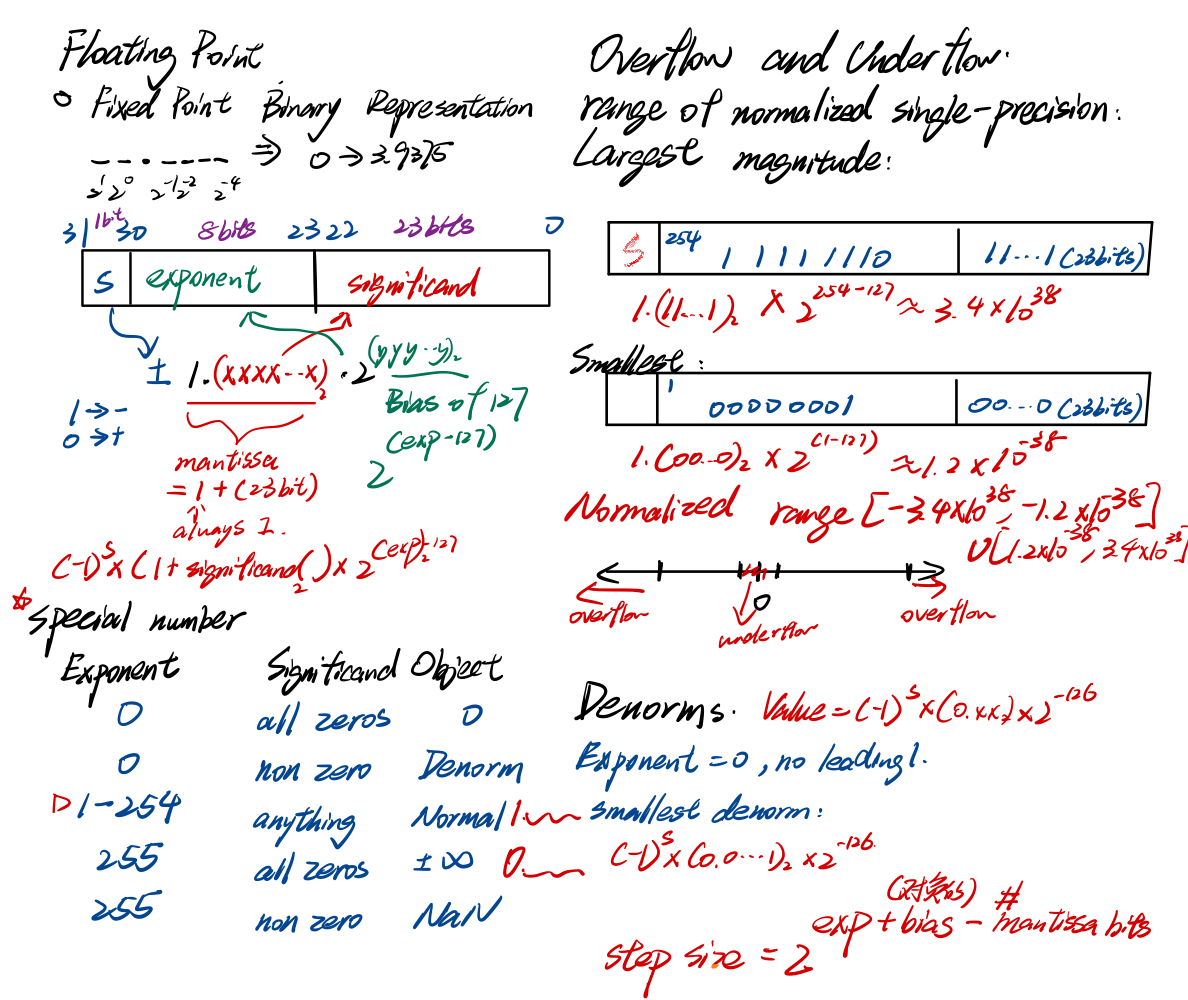 Floating Point
○ Fixed Point Binary Representation
_ _ . _ _ _ _ ⇒ 0 → 3.9375
2¹ 2⁰ 2⁻¹ 2⁻² 2⁻⁴
31 1bit 30 8bits 23 22 23bits 0
S exponent significand
± 1.(xxxx...x)₂ · 2^(yyy...y)₂
1 → -
0 → +
Bias of 127
2^(exp-127)
mantissa
= 1 + (23bit)
always 1.
(-1)^S × (1 + significand₂) × 2^((exp)₂-127)
☆ special number
Exponent Significand Object
0 all zeros 0
0 non zero Denorm
▷ 1-254 anything Normal 1.
255 all zeros ±∞ 0.
255 non zero NaN
Overflow and Underflow.
range of normalized single-precision:
Largest magnitude:
S 254 11111110 11...1 (23bits)
1.(11...1)₂ × 2^(254-127) ≈ 3.4×10³⁸
Smallest:
1 00000001 00...0 (23bits)
1.(00...0)₂ × 2^(1-127) ≈ 1.2×10⁻³⁸
Normalized range [-3.4×10³⁸, -1.2×10⁻³⁸]
U[1.2×10⁻³⁸, 3.4×10³⁸]
0
overflow underflow overflow
Denorms. Value = (-1)^S × (0.xx₂) × 2⁻¹²⁶
Exponent = 0, no leading 1.
smallest denorm:
(-1)^S × (0.0...1)₂ × 2⁻¹²⁶
step size = 2^(exp + bias - # mantissa bits)